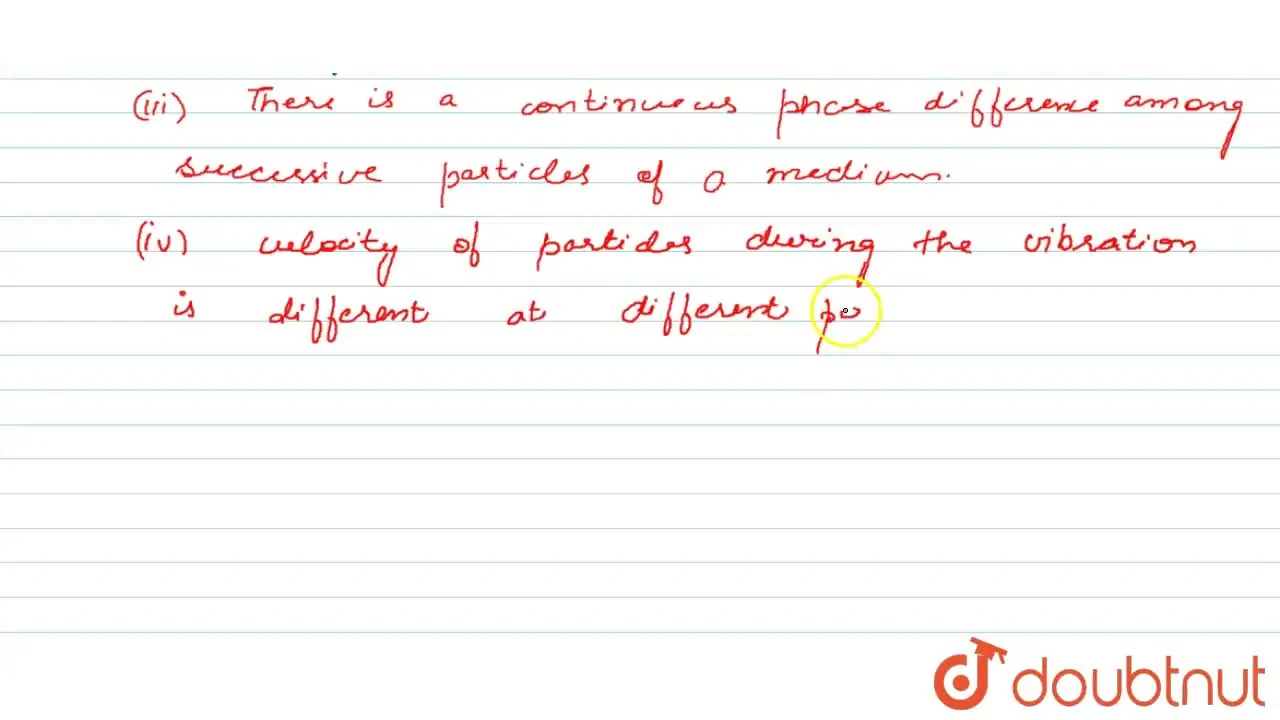 (iii) There is a continueus phase difference among
successive particles of a medium.
(iv) velocity of particles during the vibration
is different at different po
doubtnut